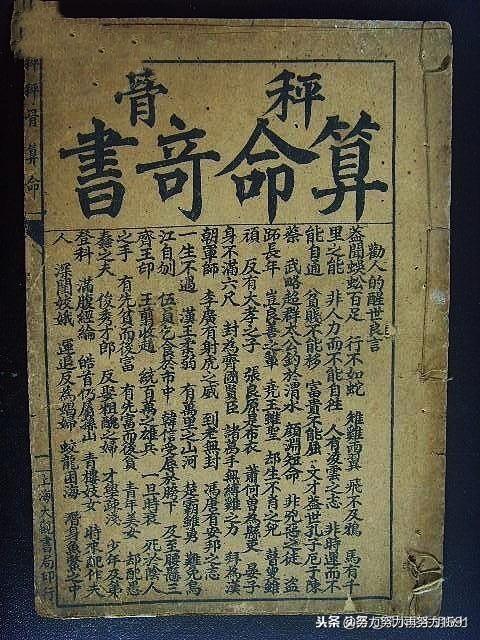 秤骨
算命竒書
勸人的醒世良言
益聞蜈蚣百足 行不如蛇 雄雞兩翼 飛不及鴉 馬有千
里之能 非人力而不能自往 人有凌雲之志 非時運而不
能自通 貧賤不能移 富貴不能屈 文才盖世孔子厄于陳
蔡 武略超群太公釣於渭水 顏淵短命 非兇惡之徒 盜
跖長年 豈良善之輩 堯王雖聖 却生不肖之兒 瞽叟雖
頑 反有大孝之子 張良原是布衣 蕭何曾為縣吏 晏子
身不滿六尺 封為齊國賢臣 諸葛手無縛雞之力 拜為漢
朝軍師 李廣有射虎之威 到老無封 馮唐有安邦之志
一生不遇 漢王 有萬里之山河 楚霸雖勇 難免烏
江自刎 伍員乞食於市中 韓信受辱於胯下 及至腰懸三
齊王印 王翦收趙 統百萬之雄兵 一旦時衰 死於陰人
之手 有先貧而後富 有先富而後貧 青年美女 却配愚
蠢之夫 俊秀才郎 反娶粗醜之婦 才學淺 少年及第
登科 滿腹經綸 皓首仍屬孫山 青樓妓女 時來配作夫
人 深閨姣娥 運退反為娼婦 蛟龍困海 潛身魚鱉之中
秤骨算命
上海大觀書局印行
头条 @努力努力再努力1591